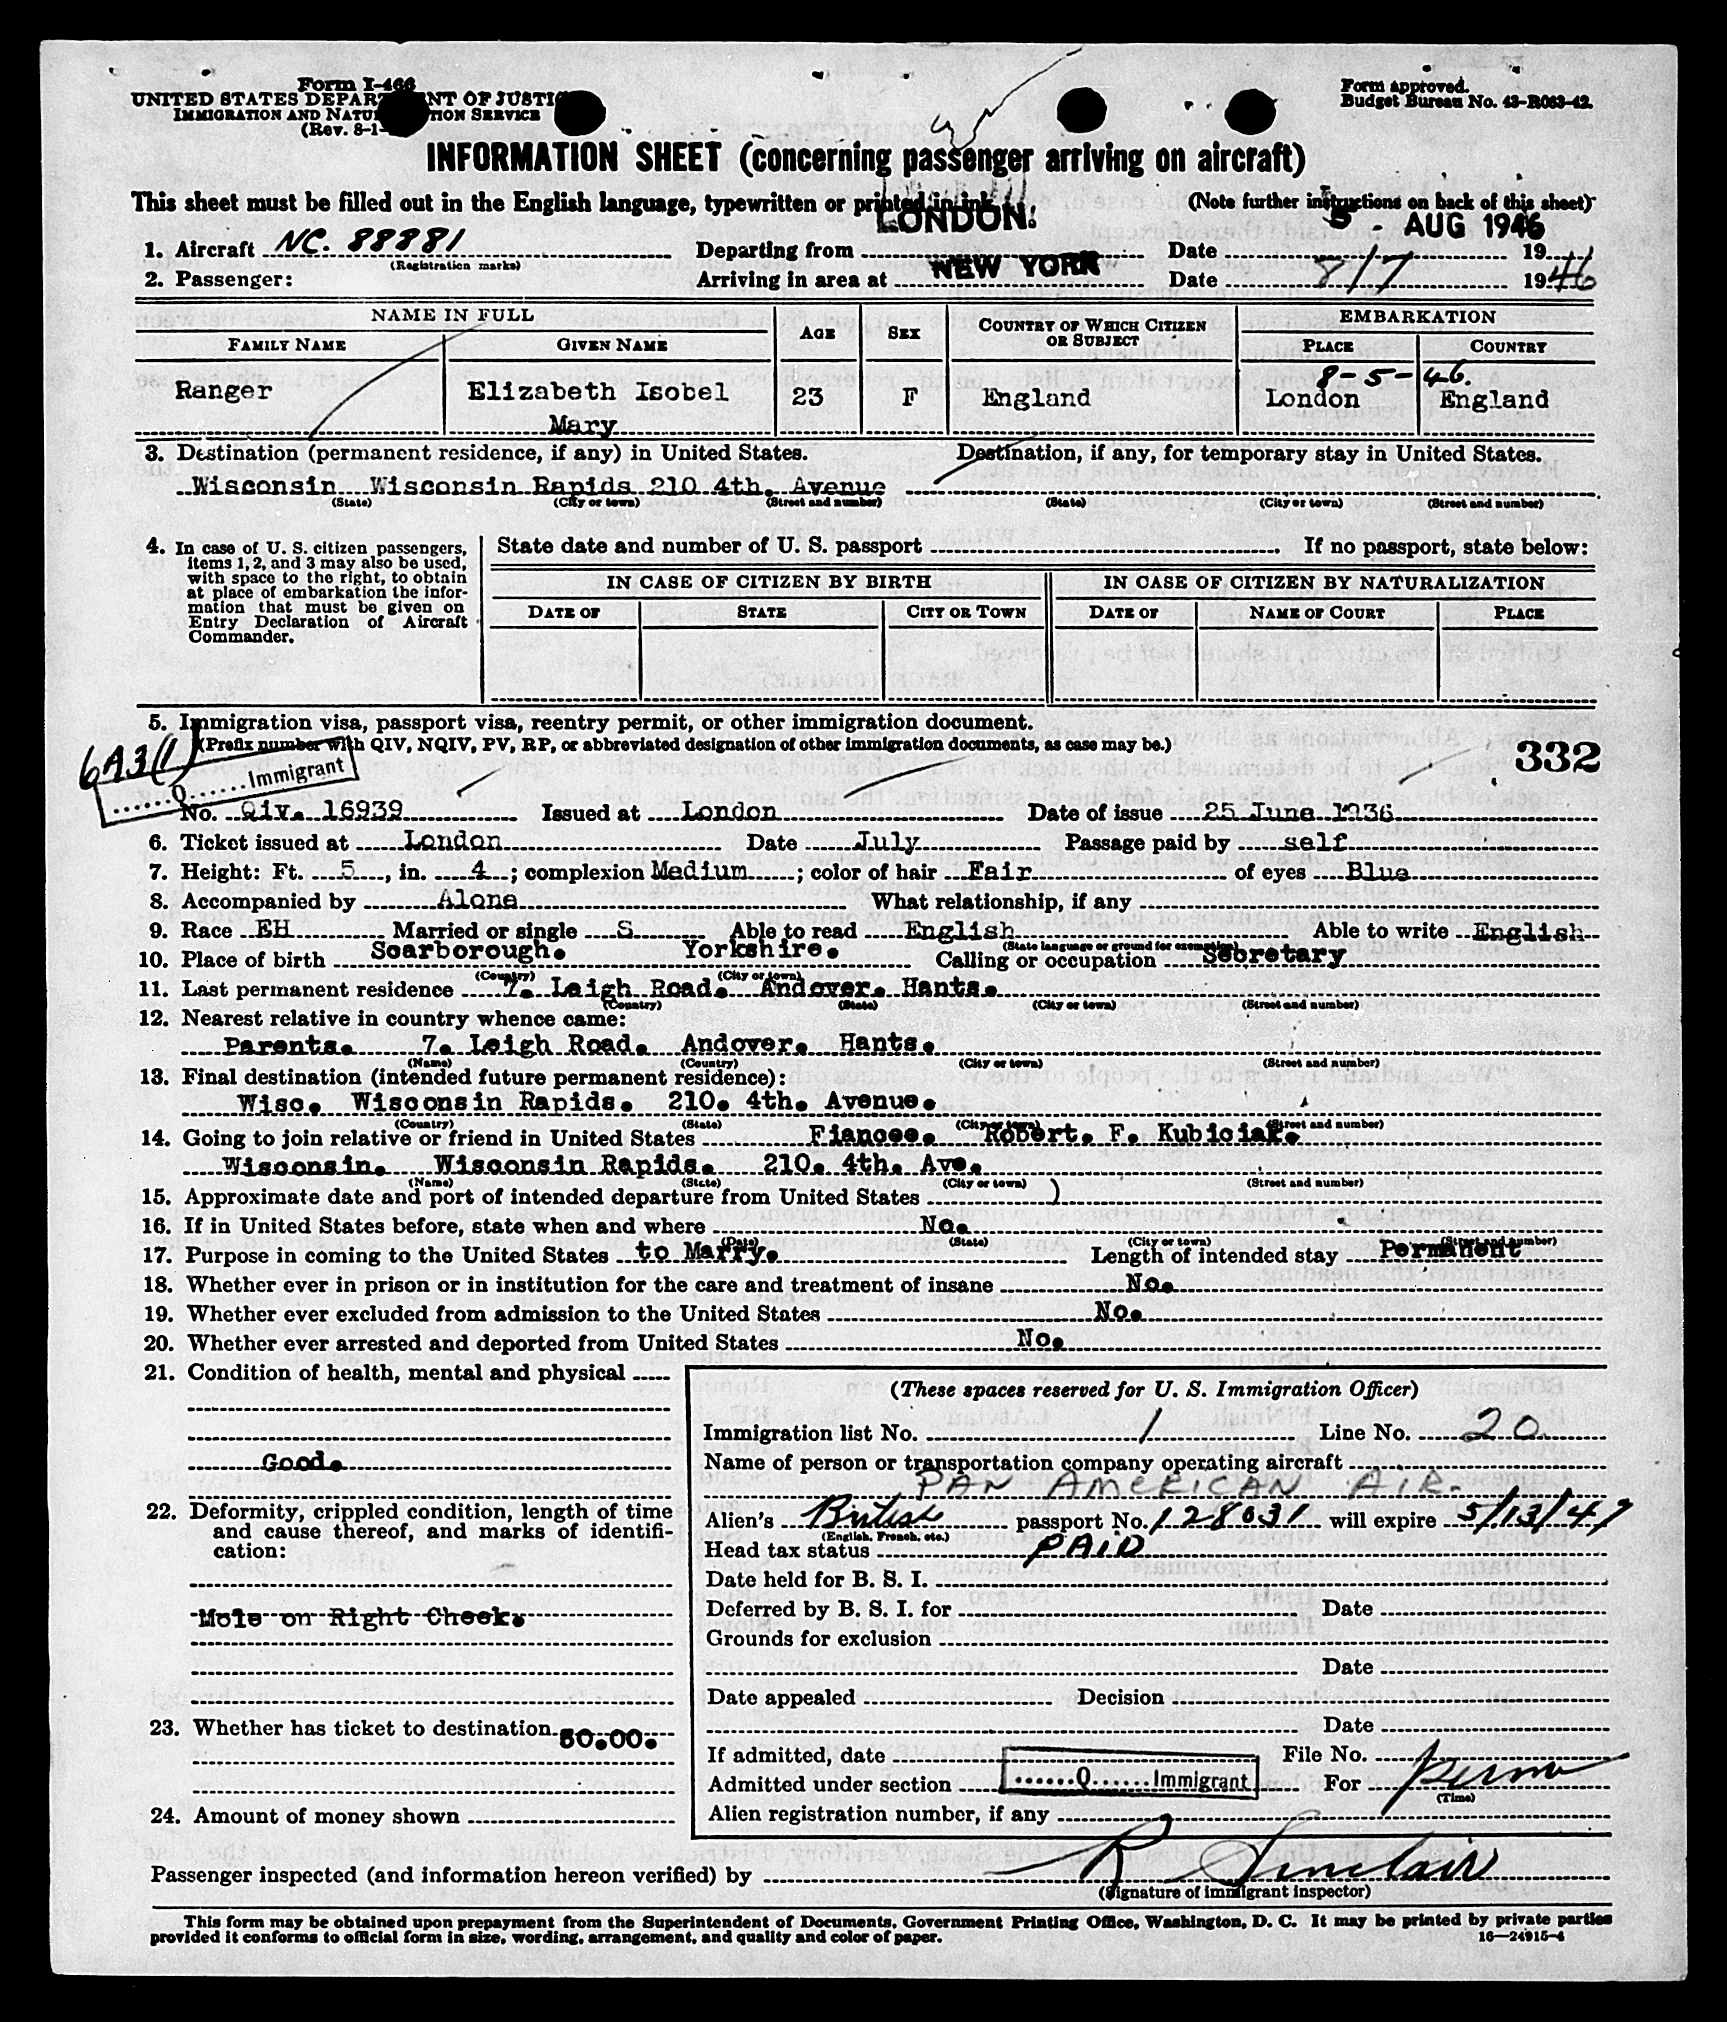 Form I-466
UNITED STATES DEPAR NT OF JUSTI
IMMIGRATION AND NATU TION SERVICE
(Rev. 8-1-
Form approved.
Budget Bureau No. 43-R063-42.
INFORMATION SHEET (concerning passenger arriving on aircraft)
This sheet must be filled out in the English language, typewritten or printed in ink. (Note further instructions on back of this sheet)
LONDON. 5 - AUG 1946
1. Aircraft NC. 88881 Departing from Date 19
(Registration marks)
2. Passenger: Arriving in area at NEW YORK Date 8/7 1946
NAME IN FULL AGE SEX COUNTRY OF WHICH CITIZEN OR SUBJECT EMBARKATION
FAMILY NAME GIVEN NAME PLACE COUNTRY
8-5-46.
Ranger Elizabeth Isobel 23 F England London England
Mary
3. Destination (permanent residence, if any) in United States. Destination, if any, for temporary stay in United States.
Wisconsin Wisconsin Rapids 210 4th. Avenue
(State) (City or town) (Street and number) (State) (City or town) (Street and number)
4. In case of U. S. citizen passengers,
items 1, 2, and 3 may also be used,
with space to the right, to obtain
at place of embarkation the infor-
mation that must be given on
Entry Declaration of Aircraft
Commander.
State date and number of U. S. passport If no passport, state below:
IN CASE OF CITIZEN BY BIRTH IN CASE OF CITIZEN BY NATURALIZATION
DATE OF STATE CITY OR TOWN DATE OF NAME OF COURT PLACE
5. Immigration visa, passport visa, reentry permit, or other immigration document.
(Prefix number with QIV, NQIV, PV, RP, or abbreviated designation of other immigration documents, as case may be.)
6A3(1)
332
Q Immigrant
No. Qiv. 16939 Issued at London Date of issue 25 June 1936
6. Ticket issued at London Date July Passage paid by self
7. Height: Ft. 5, in. 4; complexion Medium; color of hair Fair of eyes Blue
8. Accompanied by Alone What relationship, if any
9. Race EH Married or single S Able to read English Able to write English
(State language or ground for exemption)
10. Place of birth Scarborough. Yorkshire. Calling or occupation Secretary
(Country) (City or town)
11. Last permanent residence 7. Leigh Road. Andover. Hants.
(Country) (State) (City or town) (Street and number)
12. Nearest relative in country whence came:
Parents. 7. Leigh Road. Andover. Hants.
(Name) (Country) (City or town) (Street and number)
13. Final destination (intended future permanent residence):
Wisc. Wisconsin Rapids. 210. 4th. Avenue.
(Country) (State) (City or town) (Street and number)
14. Going to join relative or friend in United States Fiancee. Robert. F. Kubiciak.
Wisconsin. Wisconsin Rapids. 210. 4th. Ave.
(Name) (State) (City or town) (Street and number)
15. Approximate date and port of intended departure from United States
16. If in United States before, state when and where No.
(Date) (State) (City or town) (Street and number)
17. Purpose in coming to the United States to Marry. Length of intended stay Permanent
18. Whether ever in prison or in institution for the care and treatment of insane No.
19. Whether ever excluded from admission to the United States No.
20. Whether ever arrested and deported from United States No.
21. Condition of health, mental and physical
Good.
22. Deformity, crippled condition, length of time
and cause thereof, and marks of identifi-
cation:
Mole on Right Cheek.
23. Whether has ticket to destination
50.00.
24. Amount of money shown
(These spaces reserved for U. S. Immigration Officer)
Immigration list No. 1 Line No. 20
Name of person or transportation company operating aircraft
PAN AMERICAN AIR.
Alien's British passport No. 128031 will expire 5/13/47
(English, French, etc.)
Head tax status PAID
Date held for B. S. I.
Deferred by B. S. I. for Date
Grounds for exclusion
Date
Date appealed Decision
Date
If admitted, date File No.
Admitted under section Q Immigrant For perm
(Time)
Alien registration number, if any
Passenger inspected (and information hereon verified) by R Sinclair
(Signature of immigrant inspector)
This form may be obtained upon prepayment from the Superintendent of Documents, Government Printing Office, Washington, D. C. It may be printed by private parties
provided it conforms to official form in size, wording, arrangement, and quality and color of paper. 16—24915-4